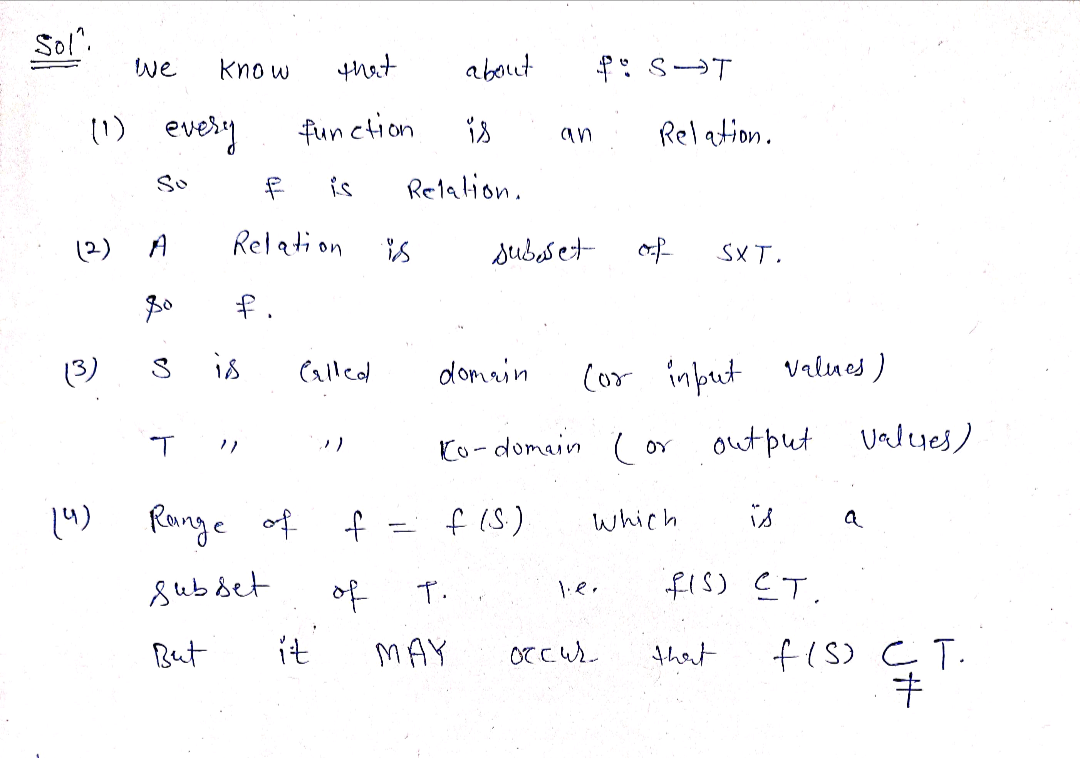 Solⁿ.
We know that about f: S→T
(1) every function is an Relation.
So f is Relation.
(2) A Relation is subset of S×T.
So f.
(3) S is Called domain (or input values)
T " " Co-domain (or output values)
(4) Range of f = f(S) which is a
subset of T. i.e. f(S) ⊆ T.
But it MAY occur that f(S) ⊊ T.